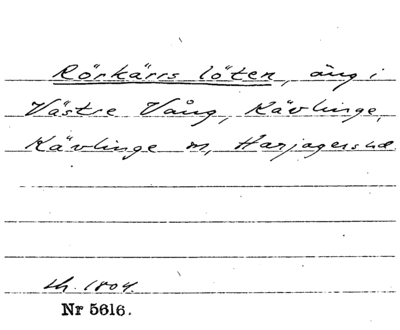 Rörkärrs löten, äng i
Västre Vång, Kävlinge,
Kävlinge sn, Harjagers hd
Lh. 1804.
Nr 5616.